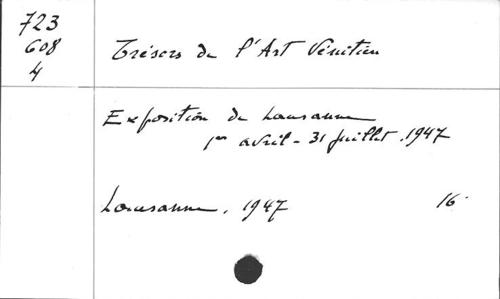 723
608
4
Trésors de l'Art Vénitien
Exposition de Lausanne
1er avril - 31 juillet 1947
Lausanne, 1947 16